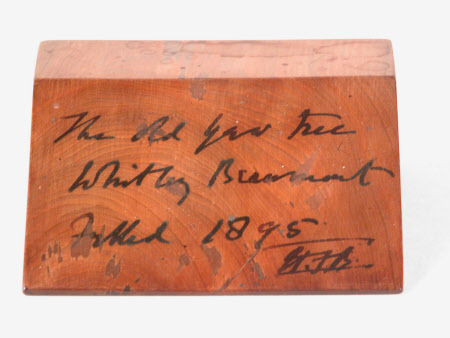 The old Yew Tree
Whitley Beaumont
Felled 1895.
H.F.B.